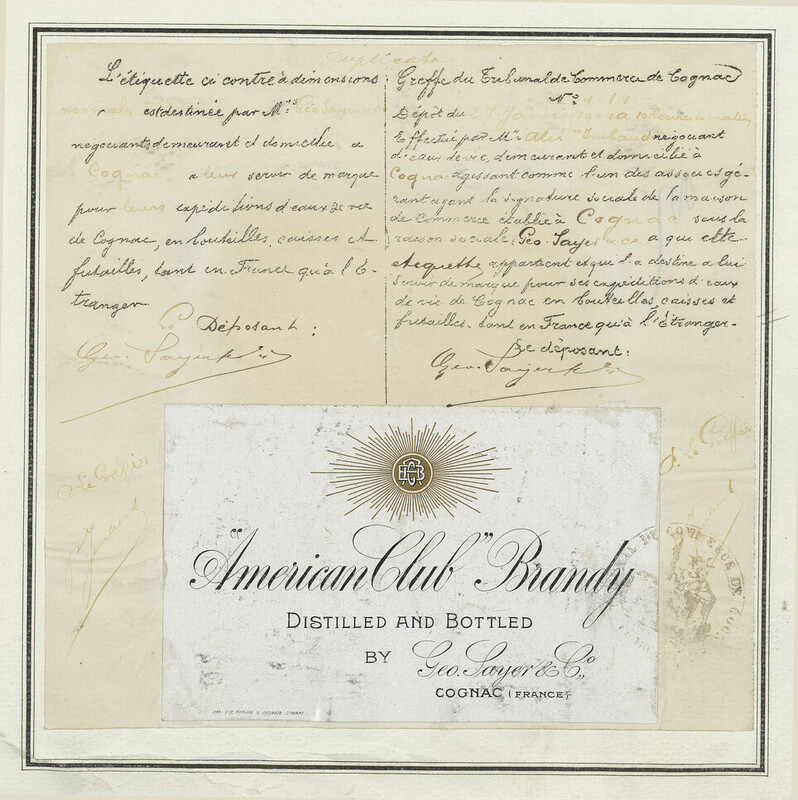 Duplicata
L'étiquette ci contre à dimensions
est destinée par M.rs Geo Sayer
négociants demeurant et domiciliés à
Cognac à leur servir de marque
pour leurs expéditions d'eaux de vie
de Cognac, en bouteilles, caisses et
futailles, tant en France qu'à l'É-
tranger
Le Déposant :
Geo. Sayer & Cie
Le Greffier
Greffe du Tribunal de Commerce de Cognac
N.o
Dépôt du
Effectué par Mr. négociant
d'eaux de vie, demeurant et domicilié à
Cognac agissant comme l'un des associés gé-
rant ayant la signature sociale de la maison
de Commerce établie à Cognac sous la
raison sociale: Geo. Sayer a qui cette
etiquette appartient et qui l'a destine a lui
servir de marque pour ses expéditions d'eaux
de vie de Cognac en bouteilles, caisses et
futailles, tant en France qu'à l'Étranger-
Le déposant:
Geo. Sayer & Cie
Le Greffier
"American Club" Brandy
DISTILLED AND BOTTLED
BY Geo. Sayer & Co,
COGNAC (FRANCE)